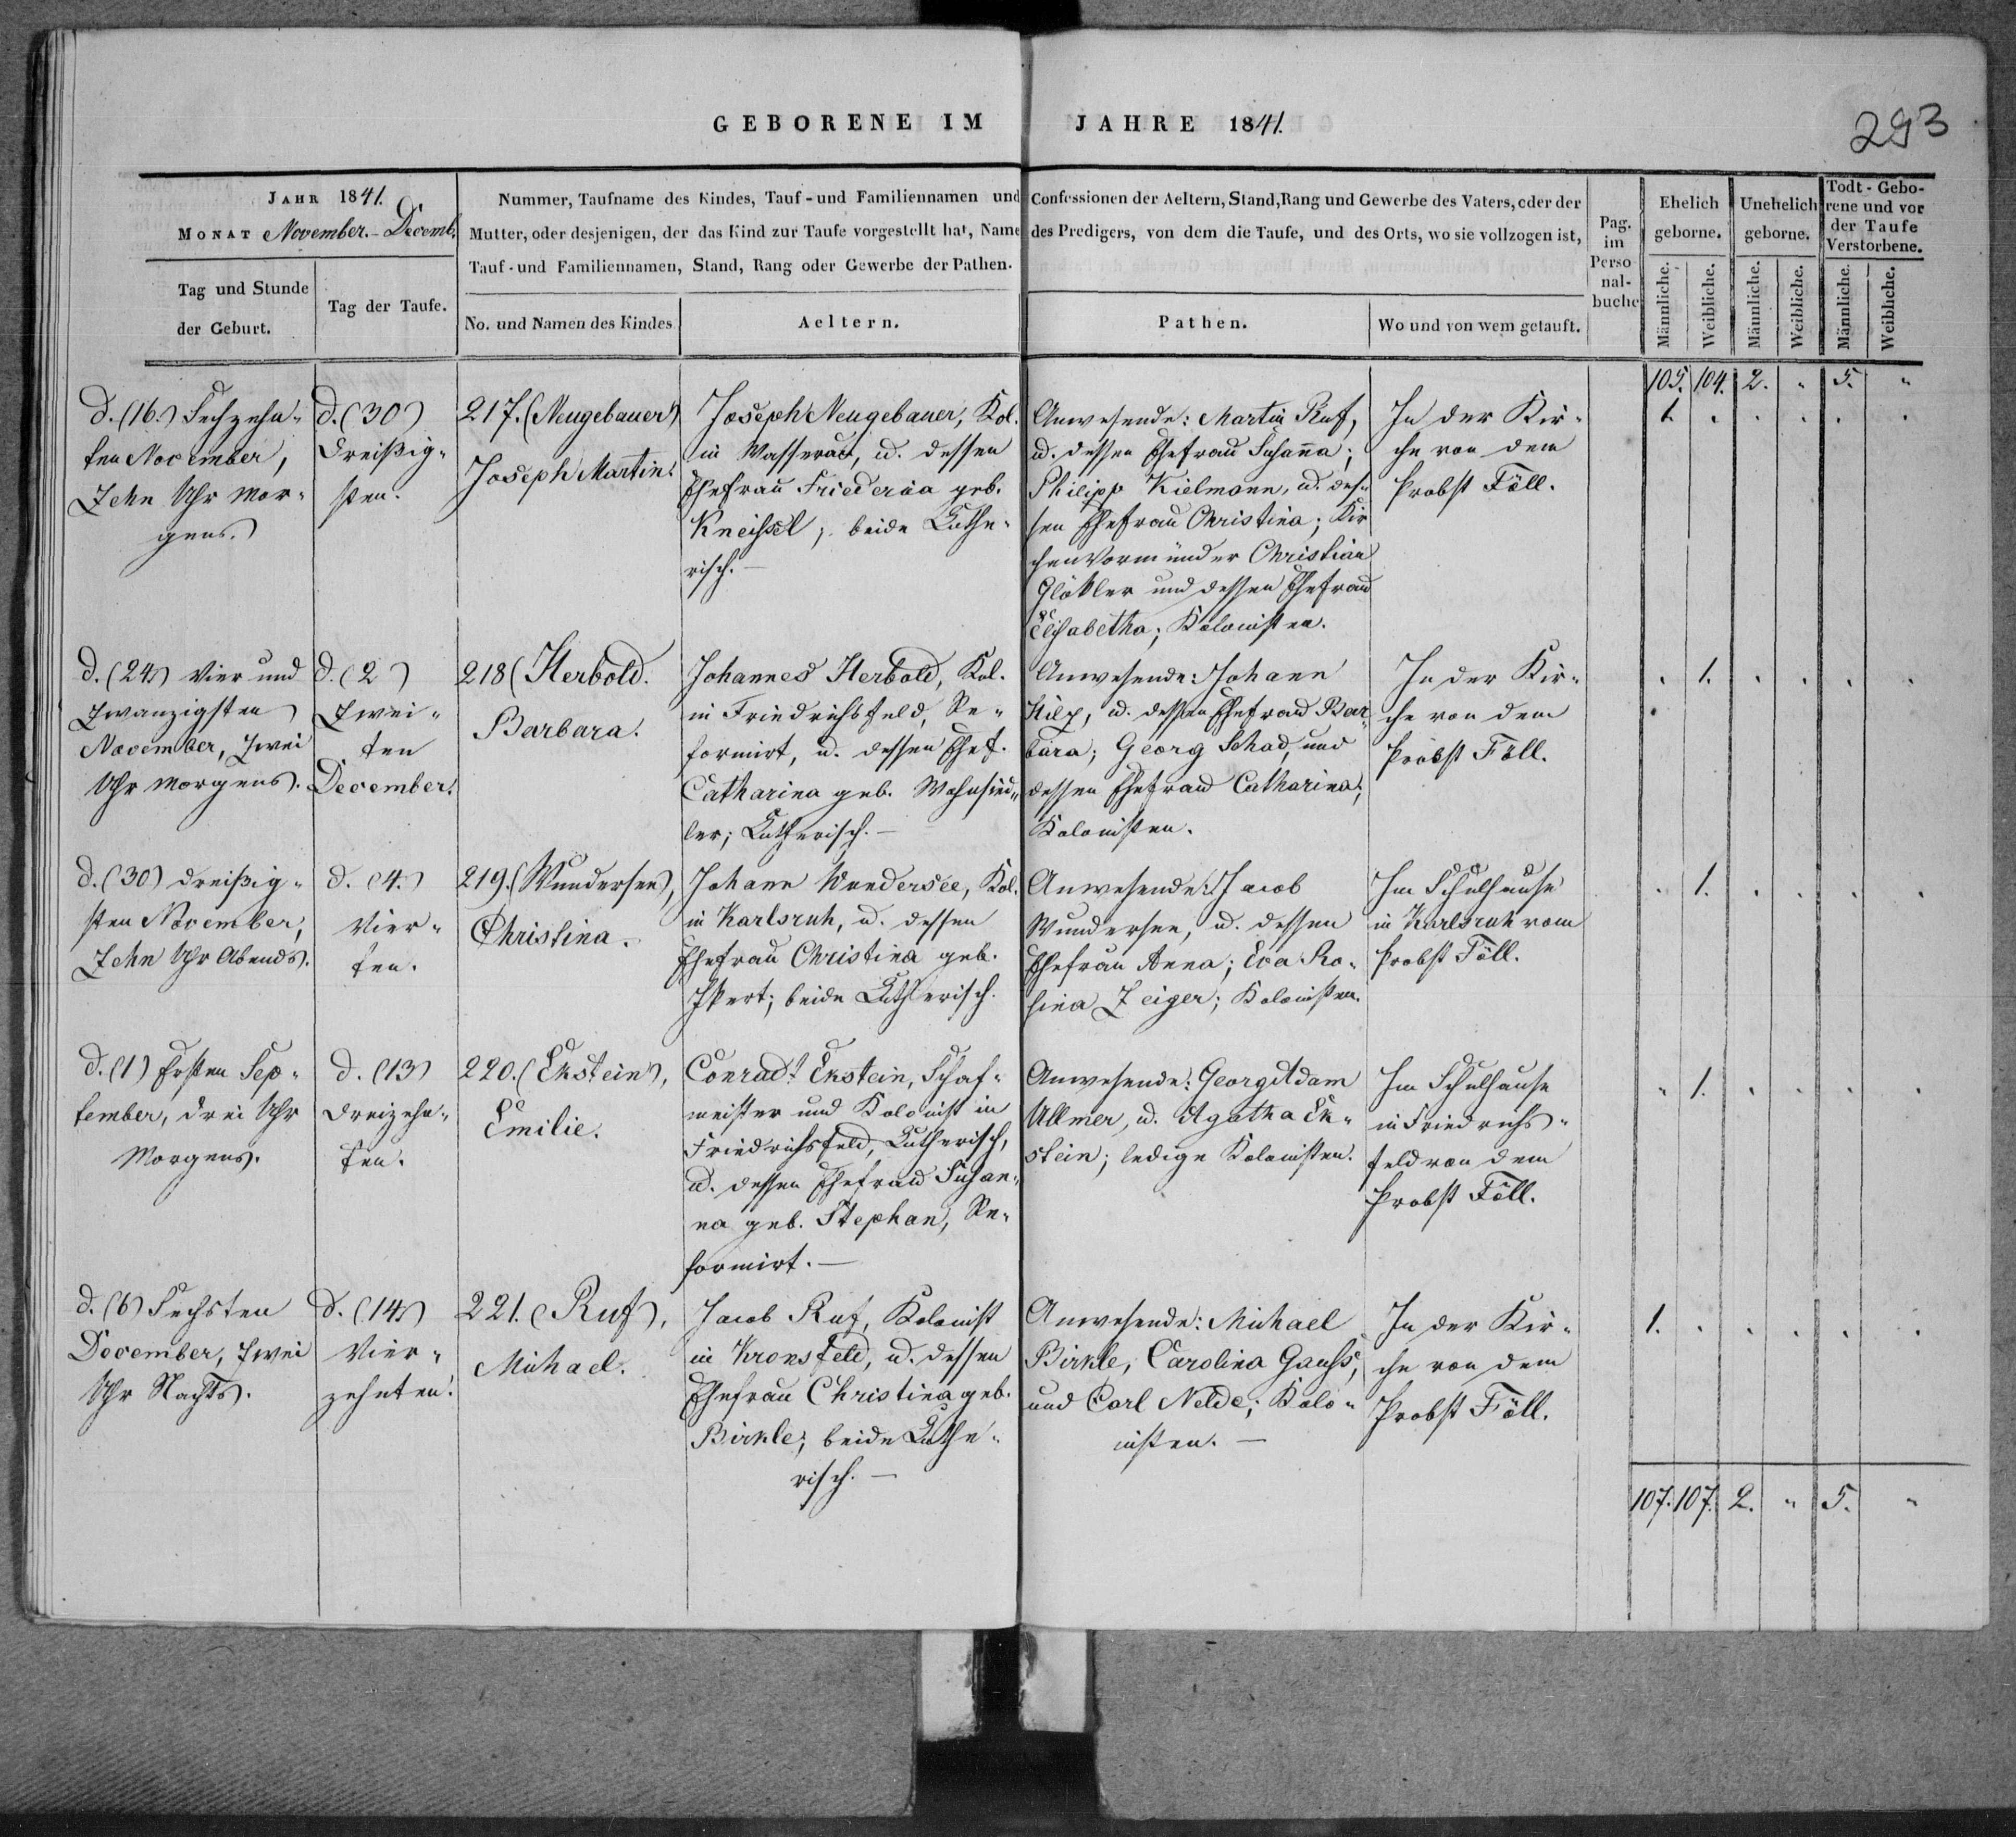 GEBORENE IM JAHRE 1841.
293
JAHR 1841.
MONAT November.- Decemb.
Tag und Stunde
der Geburt.
Tag der Taufe.
Nummer, Taufname des Kindes, Tauf- und Familiennamen und
Mutter, oder desjenigen, der das Kind zur Taufe vorgestellt hat, Name
Tauf- und Familiennamen, Stand, Rang oder Gewerbe der Pathen.
No. und Namen des Kindes
Aeltern.
Confessionen der Aeltern, Stand, Rang und Gewerbe des Vaters, oder der
des Predigers, von dem die Taufe, und des Orts, wo sie vollzogen ist,
Pathen.
Wo und von wem getauft.
Pag.
im
Perso-
nal-
buche
Ehelich
geborne.
Unehelich
geborne.
Todt-Gebo-
rene und vor
der Taufe
Verstorbene.
Männliche.
Weibliche.
Männliche.
Weibliche.
Männliche.
Weibliche.
105. 104. 2. " 5. "
d. (16.) Sechzehn-
ten November,
Zehn Uhr Mor-
gens.
d. (30)
Dreißig-
sten.
217. (Neugebauer)
Joseph Martin.
Joseph Neugebauer, Kol.
in Wasserau, u. dessen
Ehefrau Friederica geb.
Kneissel; beide Luthe-
risch. —
Anwesende: Martin Ruf,
u. dessen Ehefrau Susana;
Philipp Kielmann, u. des-
sen Ehefrau Christina; Kir
chenvormünder Christian
Glökler und dessen Ehefrau
Elisabetha; Kolonisten.
In der Kir-
che von dem
Probst Föll.
1. . . . . .
d. (24) Vier und
Zwanzigsten
November, Zwei
Uhr Morgens.
d. (2)
Zwei-
ten
December.
218 (Herbold.
Barbara.
Johannes Herbold, Kol.
in Friedrichsfeld, Re-
formirt, u. dessen Ehef.
Catharina geb. Wohnsied-
ler; Lutherisch. —
Anwesende: Johann
Hilz, u. dessen Ehefrau Bar-
bara; Georg Schad, und
dessen Ehefrau Catharina;
Kolonisten.
In der Kir-
che von dem
Probst Föll.
. 1. . . . .
d. (30) Dreißig-
sten November,
Zehn Uhr Abends.
d. (4.)
Vier-
ten.
219. (Wundersee),
Christina.
Johann Wundersee, Kol.
in Karlsruh, u. dessen
Ehefrau Christina geb.
Ihert; beide Lutherisch.
Anwesende: Jacob
Wundersee, u. dessen
Ehefrau Anna; Eva Ro-
sina Zeiger; Kolonisten.
Im Schulhause
in Karlsruh vom
Probst Föll.
. 1. . . . .
d. (1) Ersten Sep-
tember, Drei Uhr
Morgens.
d. (13)
Dreizehn-
ten.
220. (Ekstein),
Emilie.
Conrad Ekstein, Schaf-
meister und Kolonist in
Friedrichsfeld, Lutherisch,
u. dessen Ehefrau Susan-
na geb. Stephan, Re-
formirt. —
Anwesende: Georg Adam
Ullmer, u. Agatha Ek-
stein; ledige Kolonisten.
Im Schulhause
in Friedrichs-
feld von dem
Probst Föll.
" 1. . . . .
d. (6) Sechsten
December, Zwei
Uhr Nachts.
d. (14)
Vier-
zehnten.
221. (Ruf),
Michael.
Jacob Ruf, Kolonist
in Kronsfeld, u. dessen
Ehefrau Christina geb.
Birkle; beide Luthe-
risch. —
Anwesende: Michael
Birkle, Carolina Gauß,
und Carl Nelde; Kolo-
nisten. —
In der Kir-
che von dem
Probst Föll.
1. . . . . .
107. 107. 2. " 5. "